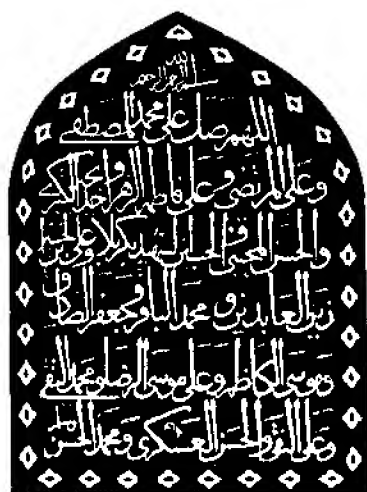 بسم الله الرحمن الرحيم
اللهم صل على محمد المصطفى
وعلى المرتضى وعلى فاطمة الزهراء وخديجة الكبرى
والحسن المجتبى والحسين الشهيد بكربلا وعلى بن الحسين
زين العابدين ومحمد الباقر وجعفر الصادق
وموسى الكاظم وعلى موسى الرضا ومحمد التقي
وعلى النقي والحسن العسكري ومحمد الحسن